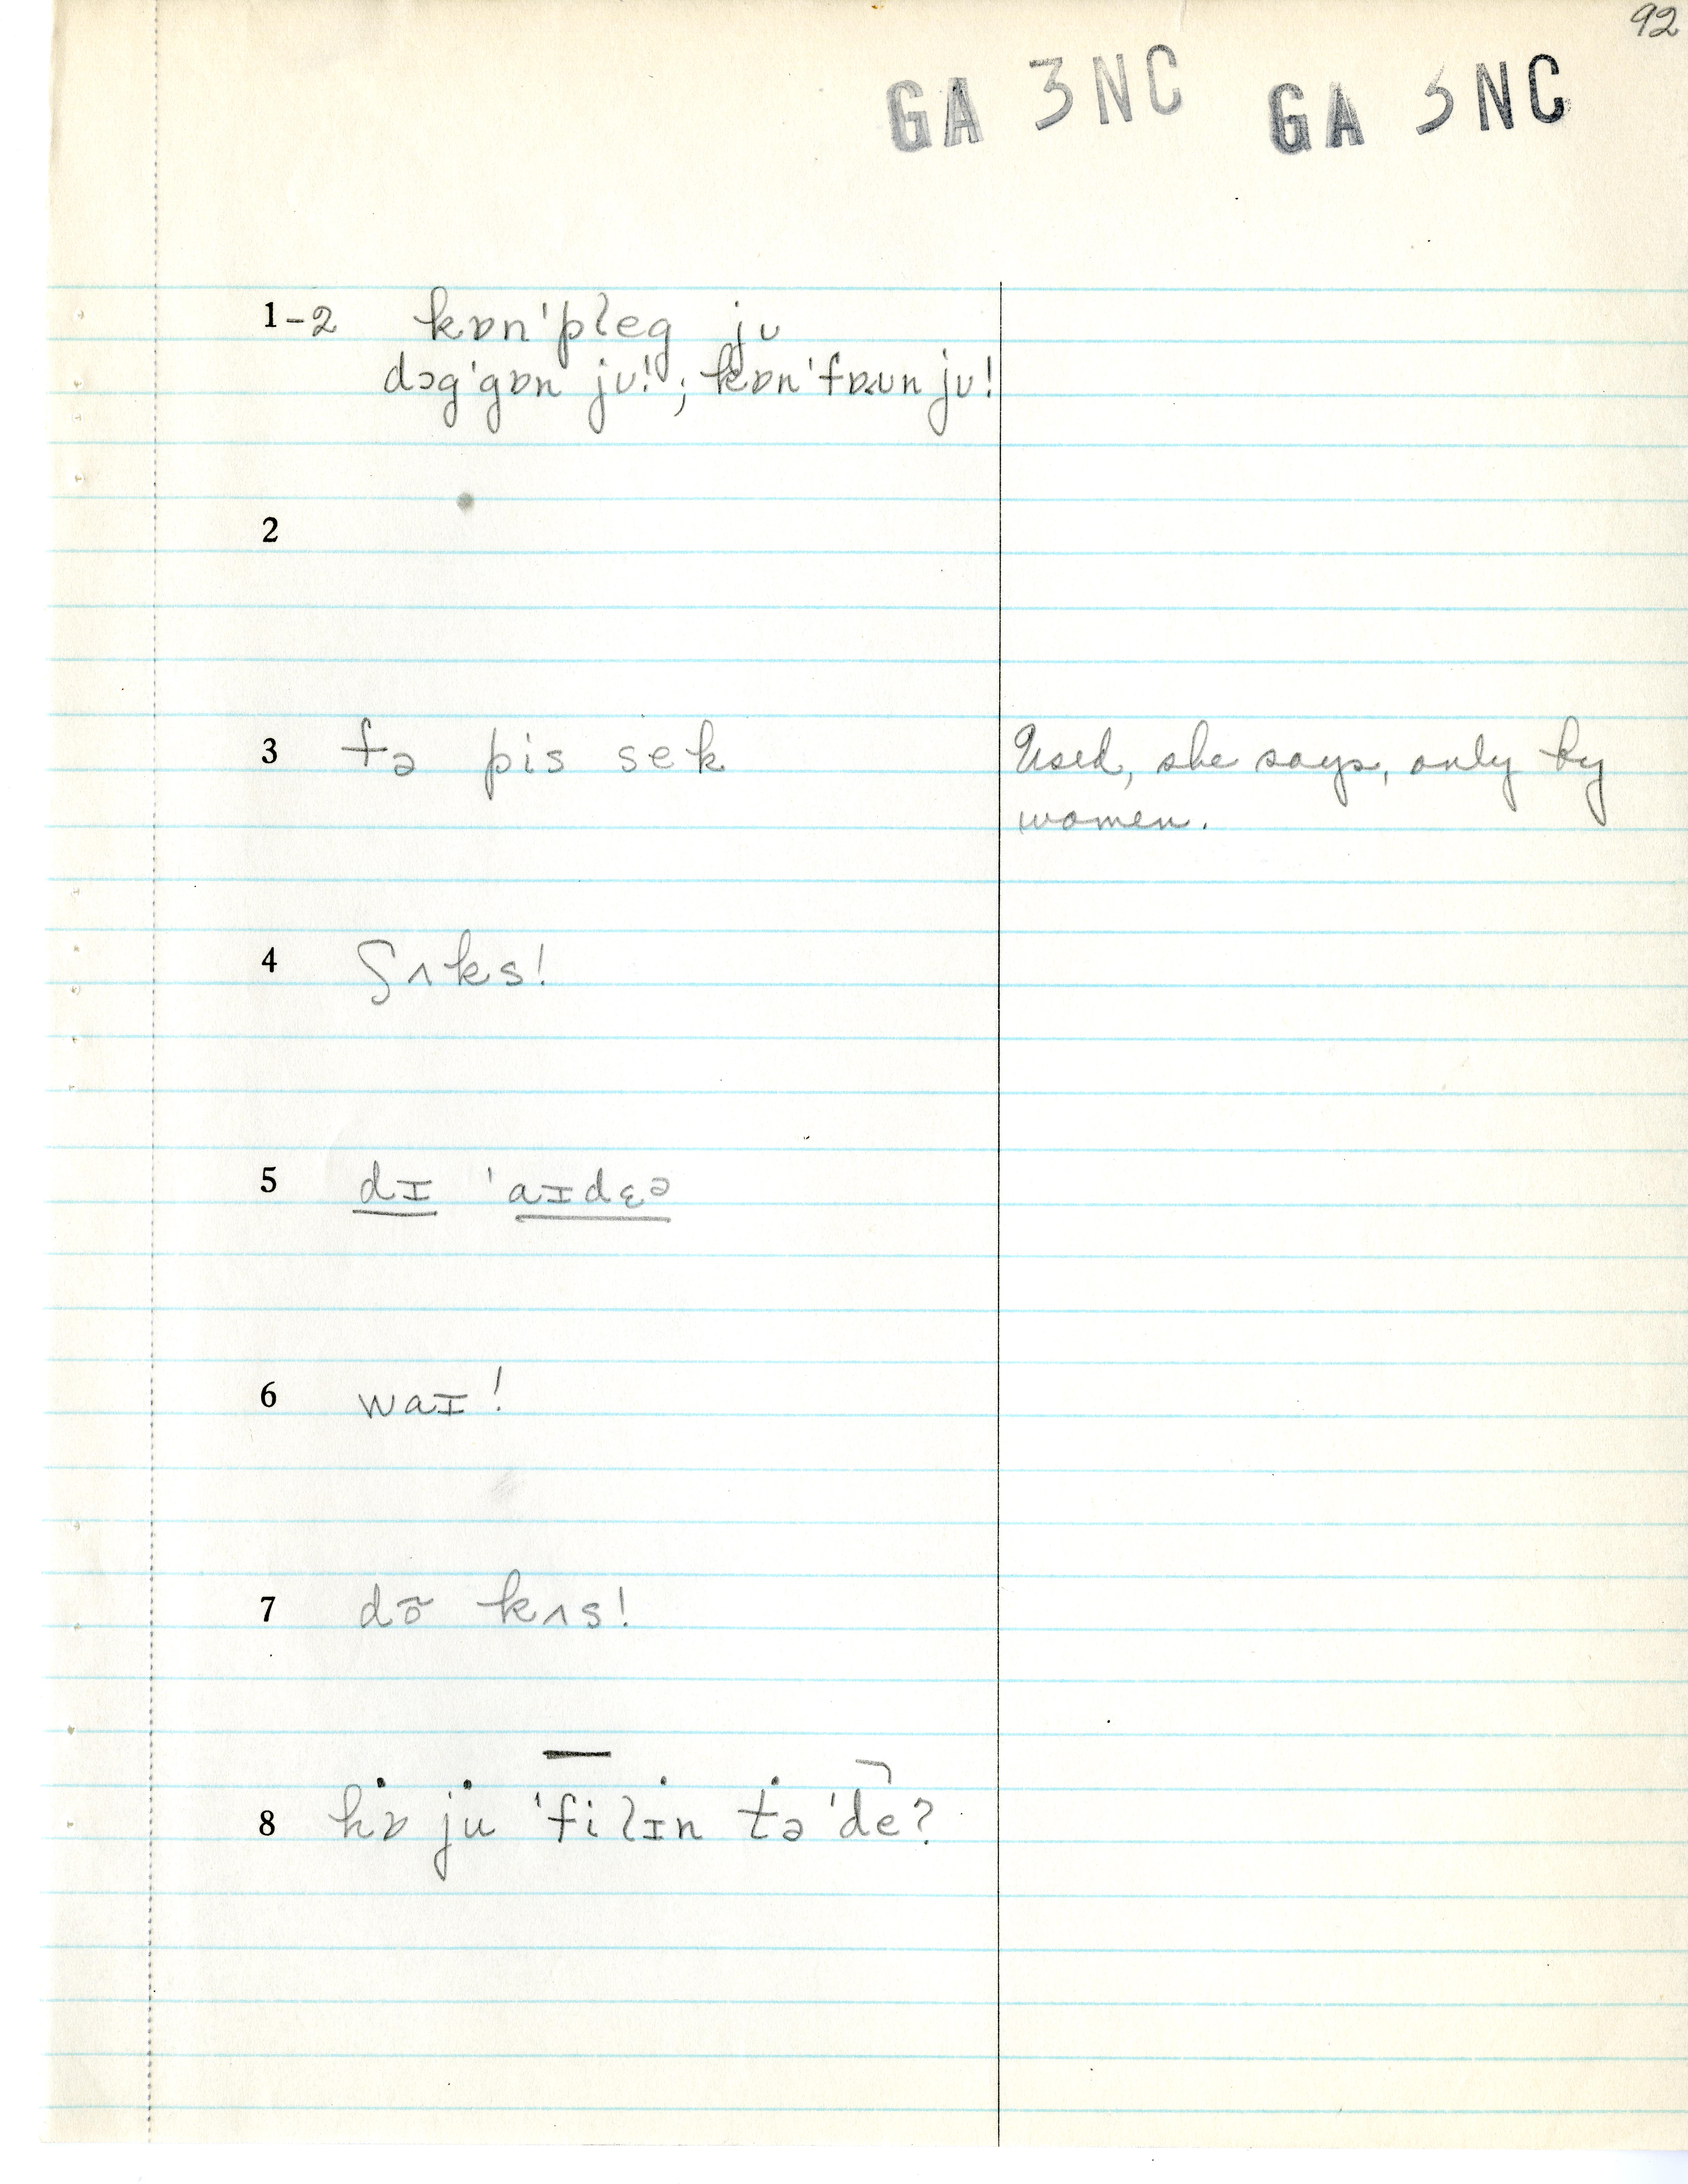 92
GA 3NC GA 3NC
1-2 kɒn'pleg jʊ
dɔg'gɒn jʊ!; kɒn'fɒʊn jʊ!
2
3 fə pis sek Used, she says, only by
women.
4 ʃʌks!
5 dɪ 'aɪdɛə
6 waɪ!
7 dõ kʌs!
8 hɒ ju 'filɪn tə'de?